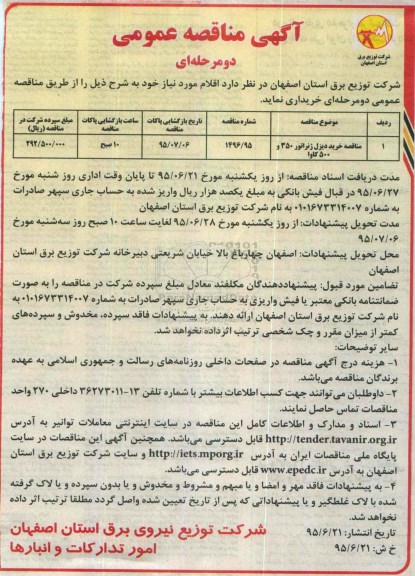 شرکت توزیع برق
استان اصفهان
آگهی مناقصه عمومی
دو مرحله‌ای
شرکت توزیع برق استان اصفهان در نظر دارد اقلام مورد نیاز خود به شرح ذیل را از طریق مناقصه
عمومی دو مرحله‌ای خریداری نماید.
ردیف موضوع مناقصه شماره مناقصه تاریخ بازگشایی پاکات مناقصه ساعت بازگشایی پاکات مناقصه مبلغ سپرده شرکت در مناقصه (ریال)
۱ مناقصه خرید دیزل ژنراتور ۳۵۰ و ۵۰۰ کاوا ۱۴۹۶/۹۵ ۹۵/۰۷/۰۶ ۱۰ صبح ۲۹۲/۵۰۰/۰۰۰
مدت دریافت اسناد مناقصه: از روز یکشنبه مورخ ۹۵/۰۶/۲۱ تا پایان وقت اداری روز شنبه مورخ
۹۵/۰۶/۲۷ در قبال فیش بانکی به مبلغ یکصد هزار ریال واریز شده به حساب جاری سپهر صادرات
به شماره ۰۱۰۱۶۷۳۳۱۴۰۰۷ به نام شرکت توزیع برق استان اصفهان
مدت تحویل پیشنهادات: از روز یکشنبه مورخ ۹۵/۰۶/۲۸ لغایت ساعت ۱۰ صبح روز سه‌شنبه مورخ
۹۵/۰۷/۰۶
محل تحویل پیشنهادات: اصفهان چهارباغ بالا خیابان شریعتی دبیرخانه شرکت توزیع برق استان
اصفهان
تضامین مورد قبول: پیشنهاددهندگان مکلفند معادل مبلغ سپرده شرکت در مناقصه را به صورت
ضمانتنامه بانکی معتبر یا فیش واریزی به حساب جاری سپهر صادرات به شماره ۰۱۰۱۶۷۳۳۱۴۰۰۷ به
نام شرکت توزیع برق استان اصفهان ارائه دهند. به پیشنهادات فاقد سپرده، مخدوش و سپرده‌های
کمتر از میزان مقرر و چک شخصی ترتیب اثر داده نخواهد شد.
سایر توضیحات:
۱- هزینه درج آگهی مناقصه در صفحات داخلی روزنامه‌های رسالت و جمهوری اسلامی به عهده
برندگان مناقصه می‌باشد.
۲- داوطلبان می‌توانند جهت کسب اطلاعات بیشتر با شماره تلفن ۱۳-۳۶۲۷۳۰۱۱ داخلی ۲۷۰ واحد
مناقصات تماس حاصل نمایند.
۳- اسناد و مدارک و اطلاعات کامل این مناقصه در سایت اینترنتی معاملات توانیر به آدرس
http://tender.tavanir.org.ir قابل دسترسی می‌باشد. همچنین آگهی این مناقصات در سایت
پایگاه ملی مناقصات ایران به آدرس http://iets.mporg.ir و وبسایت شرکت توزیع برق استان
اصفهان به آدرس www.epedc.ir قابل دسترسی می‌باشد.
۴- به پیشنهادات فاقد مهر و امضا و یا مبهم و مشروط و مخدوش و یا بدون سپرده و یا لاک گرفته
شده با لاک غلط‌گیر و یا پیشنهاداتی که پس از تاریخ تعیین شده واصل گردد مطلقا ترتیب اثر داده
نخواهد شد.
تاریخ انتشار: ۹۵/۶/۲۱
خ ش: ۹۵/۶/۲۱
شرکت توزیع نیروی برق استان اصفهان
امور تدارکات و انبارها